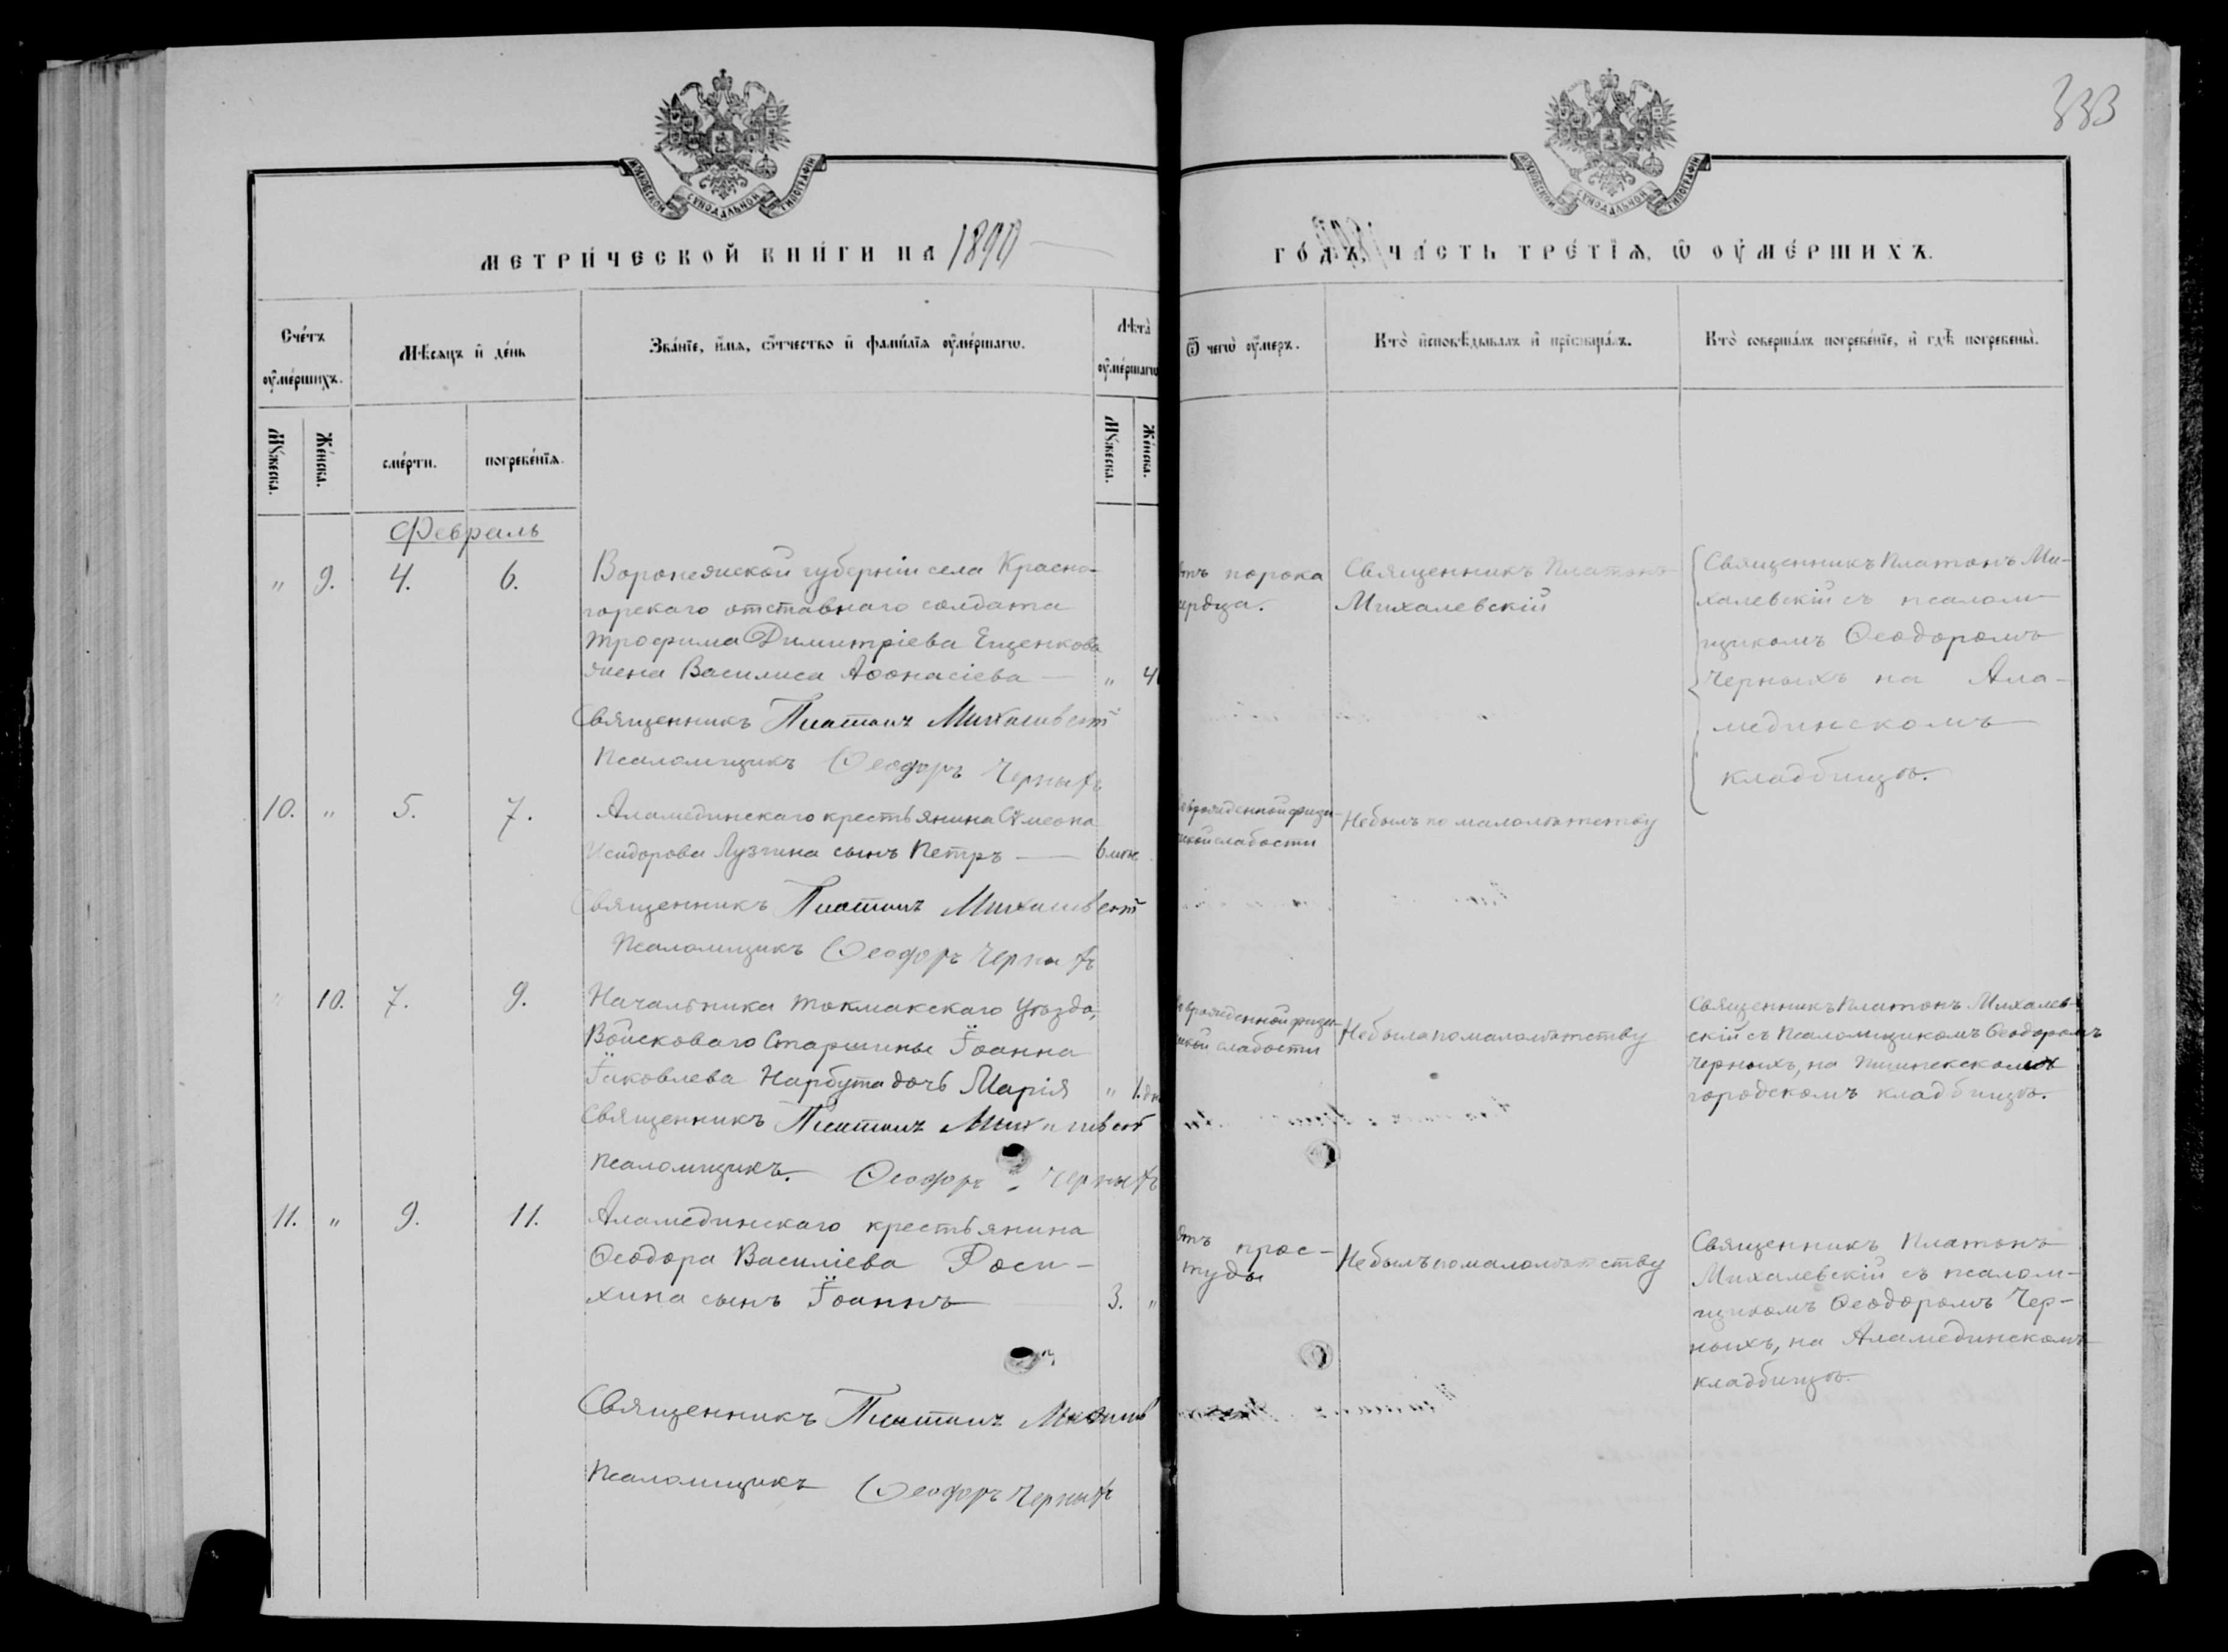 333
МОСКОВСКОЙ СѴНОДАЛЬНОЙ ТИПОГРАФІИ
МОСКОВСКОЙ СѴНОДАЛЬНОЙ ТИПОГРАФІИ
МЕТРИ́ЧЕСКОЙ КНИ́ГИ НА 1890
ГО́ДЪ, ЧА́СТЬ ТРЕ́ТІѦ, Ѡ҆ ОУ҆МЕ́РШИХЪ.
Сче́тъ оу҆ме́ршихъ.
Мѣ́сѧцъ и҆ де́нь
Зва́нїе, и҆́мѧ, ѻ҆́тчество и҆ фами́лїѧ оу҆ме́ршагѡ.
Лѣ́та оу҆ме́ршагѡ
Ѿ чегѡ̀ оу҆́меръ.
Кто̀ и҆сповѣ́дывалъ и҆ прїѡбща́лъ.
Кто̀ соверша́лъ погребе́нїе, и҆ гдѣ̀ погребены̀.
Мꙋ́жеска.
Же́нска.
сме́рти.
погребе́нїѧ.
Мꙋ́жеска.
Же́нска.
Февраль
" 9. 4. 6.
Воронежской губерніи села Красно-
горскаго отставнаго солдата
Трофима Димитріева Ещенкова
жена Василиса Аѳонасіева — " 4
Священникъ Платонъ Михалевскій
Псаломщикъ Ѳеодоръ Черныхъ
отъ порока
сердца.
Священникъ Платонъ
Михалевскій
Священникъ Платонъ Ми-
халевскій съ псалом-
щикомъ Ѳеодоромъ
Черныхъ на Ала-
мединскомъ
кладбищѣ.
10. " 5. 7.
Аламединскаго крестьянина Сѵмеона
Исидорова Лузгина сынъ Петръ — 6 мѣс
Священникъ Платонъ Михалевскій
Псаломщикъ Ѳеодоръ Черныхъ
врожденной физи-
ческой слабости
Небылъ по малолѣтству
" 10. 7. 9.
Начальника Токмакскаго Уѣзда,
Войсковаго Старшины Іоанна
Іаковлева Нарбута дочь Марія " 1. дн
Священникъ Платонъ Михалевскій
Псаломщикъ. Ѳеодоръ Черныхъ
врожденной физи-
ческой слабости
Небыла по малолѣтству
Священникъ Платонъ Михалев-
скій съ Псаломщикомъ Ѳеодоромъ
Черныхъ, на Пишпекскомъ
городскомъ кладбищѣ.
11. " 9. 11.
Аламединскаго крестьянина
Ѳеодора Василіева Роси-
хина сынъ Іоаннъ 3. "
Священникъ Платонъ Михалев
Псаломщикъ Ѳеодоръ Черныхъ
отъ прос-
туды
Небылъ по малолѣтству
Священникъ Платонъ
Михалевскій съ псалом-
щикомъ Ѳеодоромъ Чер-
ныхъ, на Аламединскомъ
кладбищѣ.